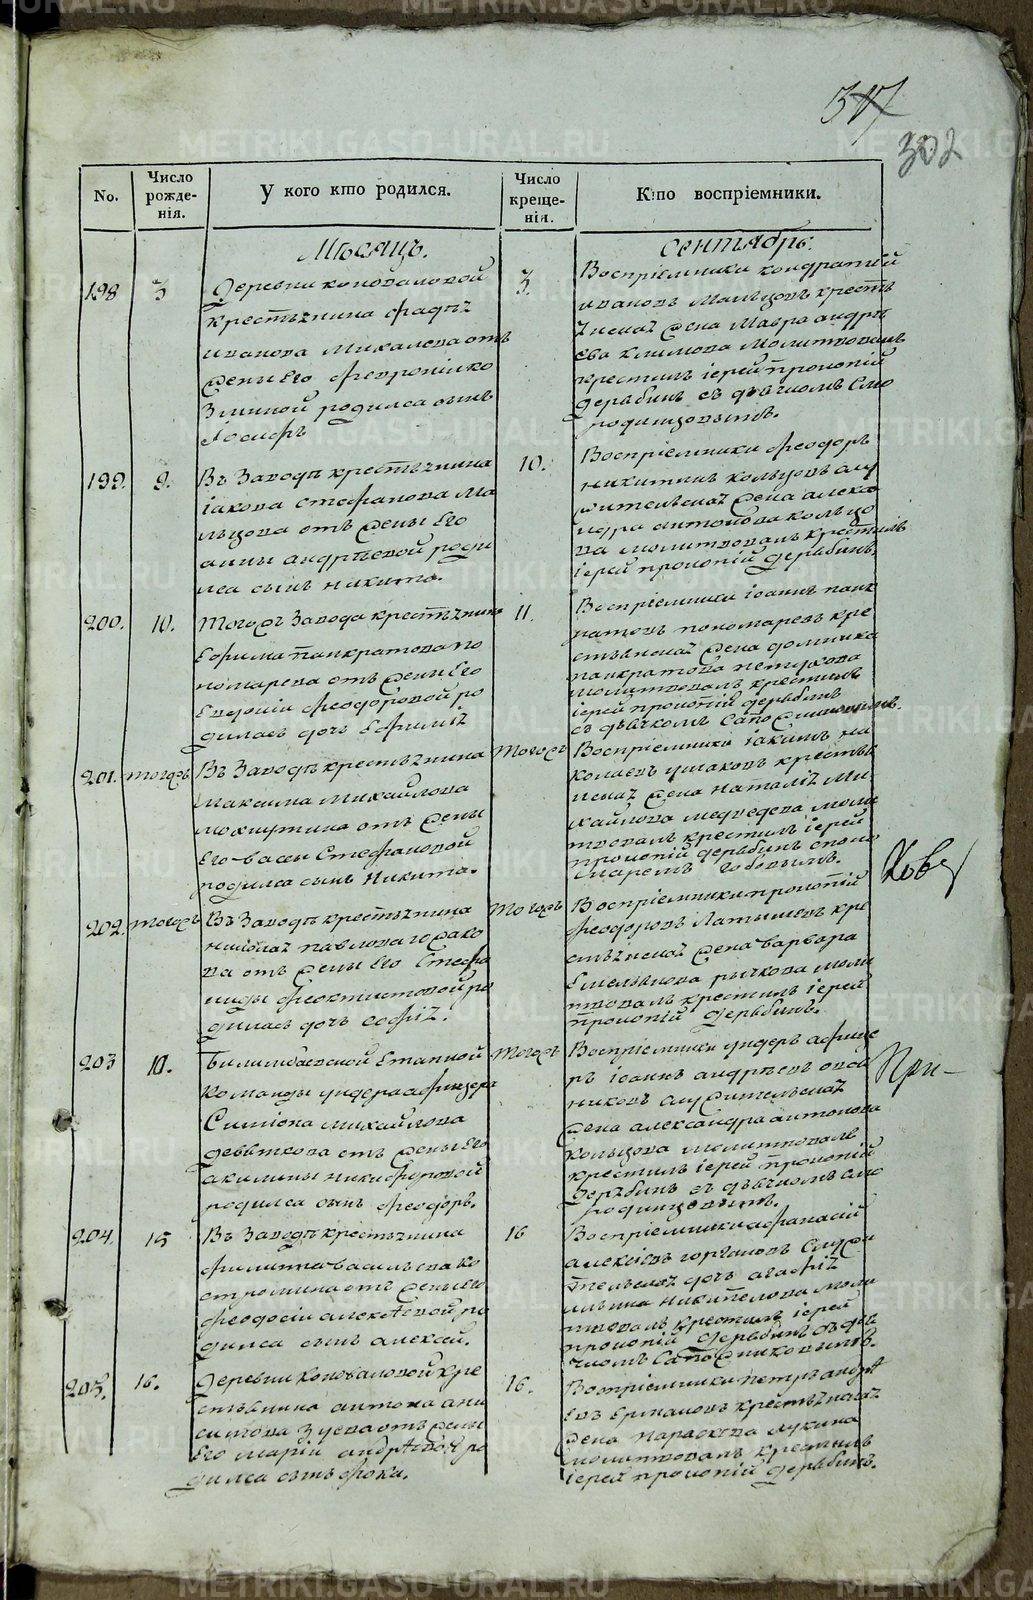 317
302
No.
Число рожде-нія.
У кого кто родился.
Число креще-нія.
Кто воспріемники.
Мѣсяцъ.
Сентябрь.
198
3
Деревни коноваловой
крестьянина
иванова Михалева отъ
жены его Февроніи ко
зминой родился сынъ
Іосифъ
3.
Воспріемники кондратій
ивановъ Мальцовъ кресть
янская жена Мавра андрѣ
ева климова молитвовалъ
крестилъ іерей прокопій
дерябинъ съ дьячкомъ Смо
родинцовымъ.
199.
9.
Въ Заводѣ крестьянина
іакова Стефанова Ма
льцова отъ жены его
анны андрѣевой роди
лся сынъ никита.
10.
Воспріемники феодоръ
никитинъ кольцовъ слу
жительская жена алекса
ндра антонова кольцо
ва молитвовалъ крестилъ
іерей прокопій дерябинъ.
200.
10.
Тогожъ Завода крестьянина
Ефима панкратова по
номарева отъ жены его
Евдокіи Феодоровой ро
дилась дочь Ефимія
11.
Воспріемники іоаннъ панк
ратовъ пономаревъ кре
стьянская жена домника
панкратова петухова
молитвовалъ крестилъ
іерей прокопій дерябинъ
съ дьячкомъ Сапожниковымъ.
201.
тогожъ
Въ Заводѣ крестьянина
Максима Михайлова
мокшутина отъ жены
его васы Стефановой
родился сынъ Никита.
тогожъ
Воспріемники іакимъ ни
колаевъ ушаковъ крестья
нская жена Наталія Ми
хайлова медведева моли
твовалъ крестилъ іерей
прокопій дерябинъ съ поно
маремъ
202.
тогожъ
Въ Заводѣ крестьянина
николая павлова
ва отъ жены его Стефа
ниды Феоктистовой ро
дилась дочь Софія.
тогожъ
Воспріемники прокопій
феодоровъ Латышевъ кре
стьянская жена варвара
Емельянова рычкова моли
твовалъ крестилъ іерей
прокопій дерябинъ.
203
11.
Билимбаевской Етапной
команды ундера афицера
Симіона михайлова
девяткова отъ жены его
акилины никифоровой
родился сынъ феодоръ.
тогожъ
Воспріемники ундеръ афице
ръ іоаннъ андрѣевъ
никовъ служительская
жена александра антонова
кольцова молитвовалъ
крестилъ іерей прокопій
дерябинъ съ дьячкомъ смо
родинцовымъ.
При-
204.
15
Въ Заводѣ крестьянина
филиппа васильева ко
стромина отъ жены его
феодосіи алексѣевой ро
дился сынъ алексей.
16
Воспріемники афанасій
алексіевъ горгановъ служи
тельская дочь агафія
ильина никителова моли
твовалъ крестилъ іерей
прокопій дерябинъ съ дья
чкомъ Сапожниковымъ.
205.
16.
Деревни коноваловой кре
стьянина антона ани
симова Зуева отъ жены
его маріи андрѣевой ро
дился сынъ фока.
16.
Воспріемники петръ андрѣ
евъ Ермаковъ крестьянская
жена параскева лукина
молитвовалъ крестилъ
іерей прокопій дерябинъ.
METRIKI.GASO-URAL.RU